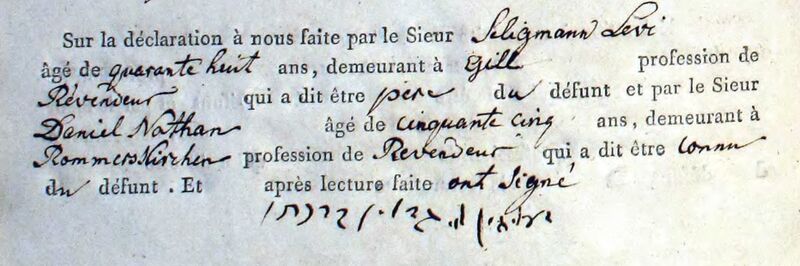 Sur la déclaration à nous faite par le Sieur Seligmann Levi
âgé de quarante huit ans, demeurant à Gill profession de
Révendeur qui a dit être pere du défunt et par le Sieur
Daniel Nathan âgé de cinquante cinq ans, demeurant à
Rommerskirchen profession de Revendeur qui a dit être connu
du défunt. Et après lecture faite ont signé